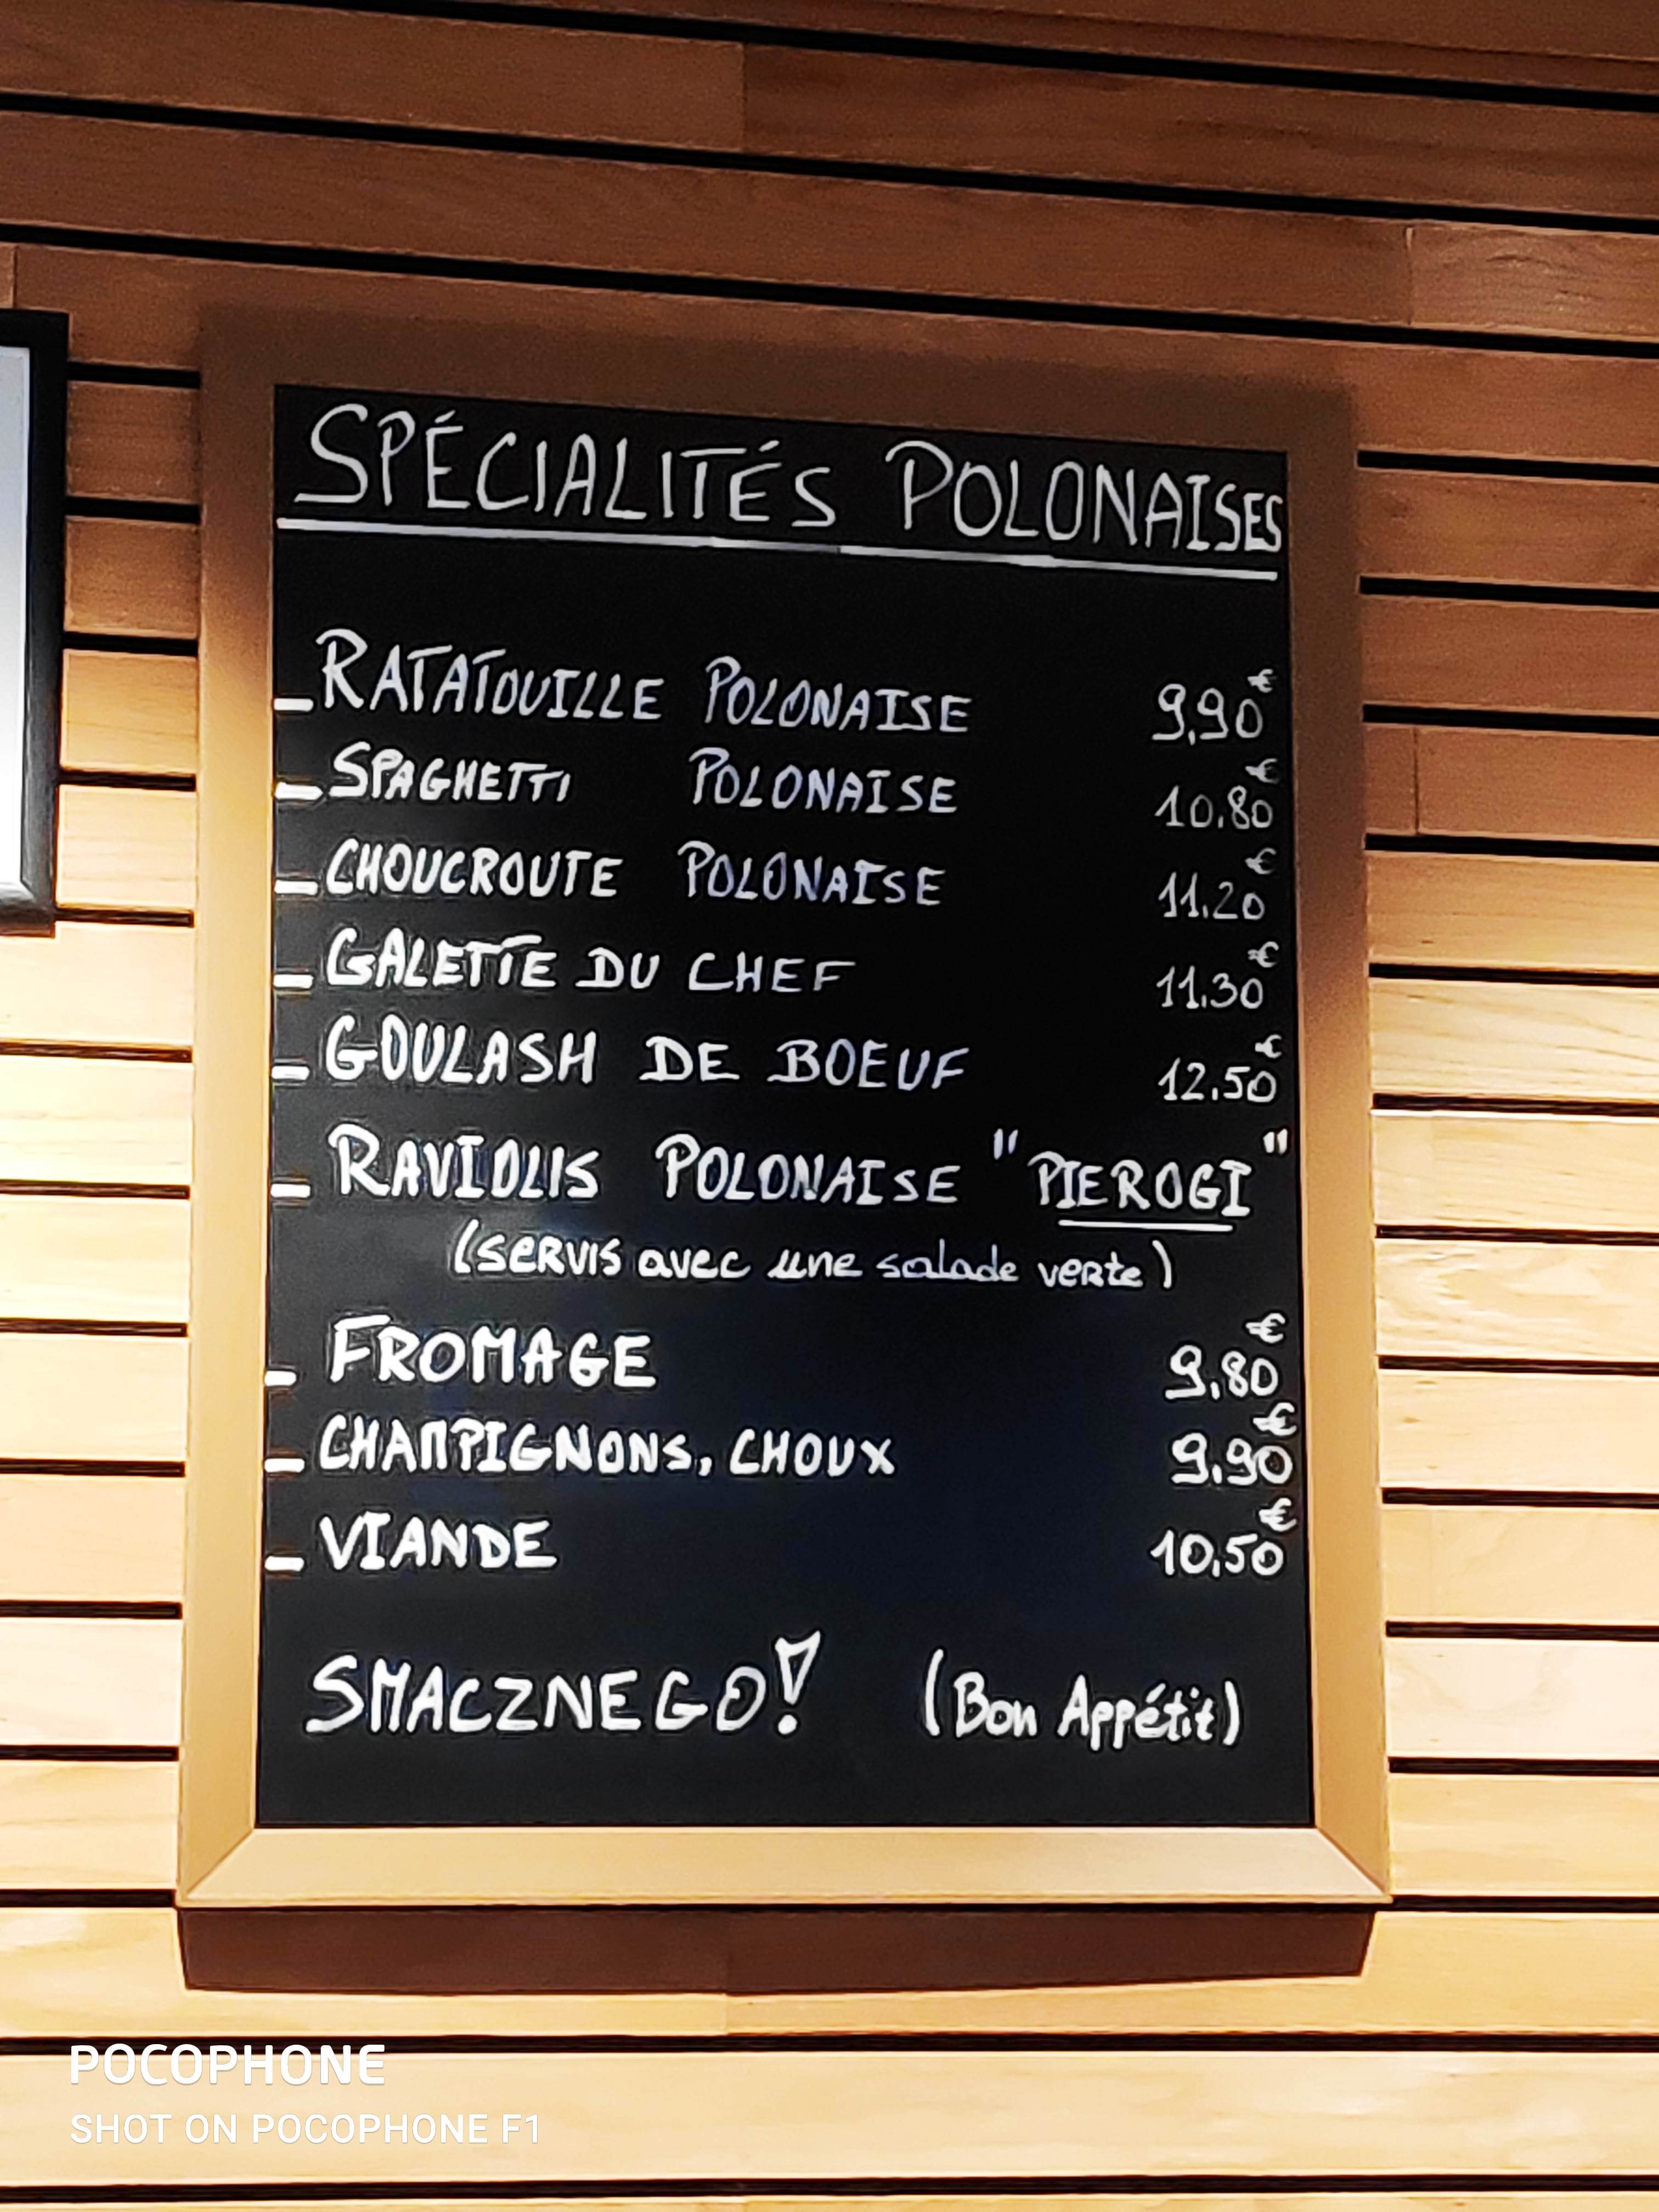 SPÉCIALITÉS POLONAISES
- RATATOUILLE POLONAISE 9,90€
- SPAGHETTI POLONAISE 10.80€
- CHOUCROUTE POLONAISE 11.20€
- GALETTE DU CHEF 11.30€
- GOULASH DE BOEUF 12.50€
- RAVIOLIS POLONAISE "PIEROGI"
(SERVIS avec une salade verte)
- FROMAGE 9,80€
- CHAMPIGNONS, CHOUX 9,90€
- VIANDE 10,50€
SMACZNEGO! (Bon Appétit)
POCOPHONE
SHOT ON POCOPHONE F1